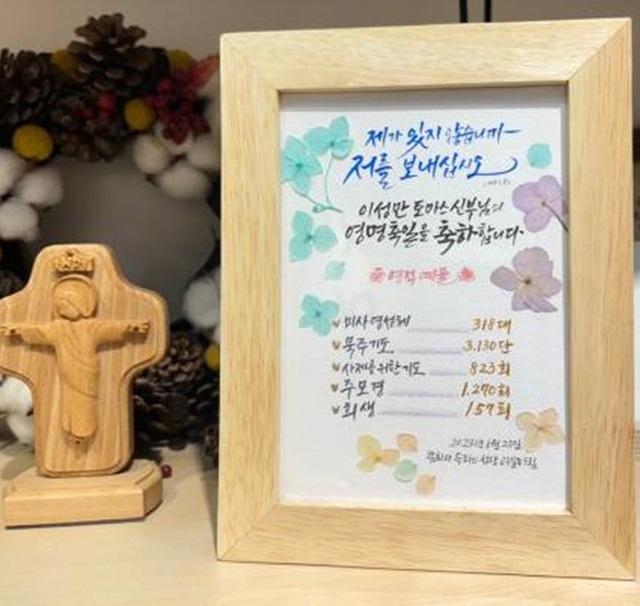 제가 있지 않습니까
저를 보내십시오
이성만 토마스 신부님의
영명축일을 축하합니다.
영적 예물
미사영성체 318대
묵주기도 3.130단
사제를위한기도 823회
주모경 1.270회
희생 157회